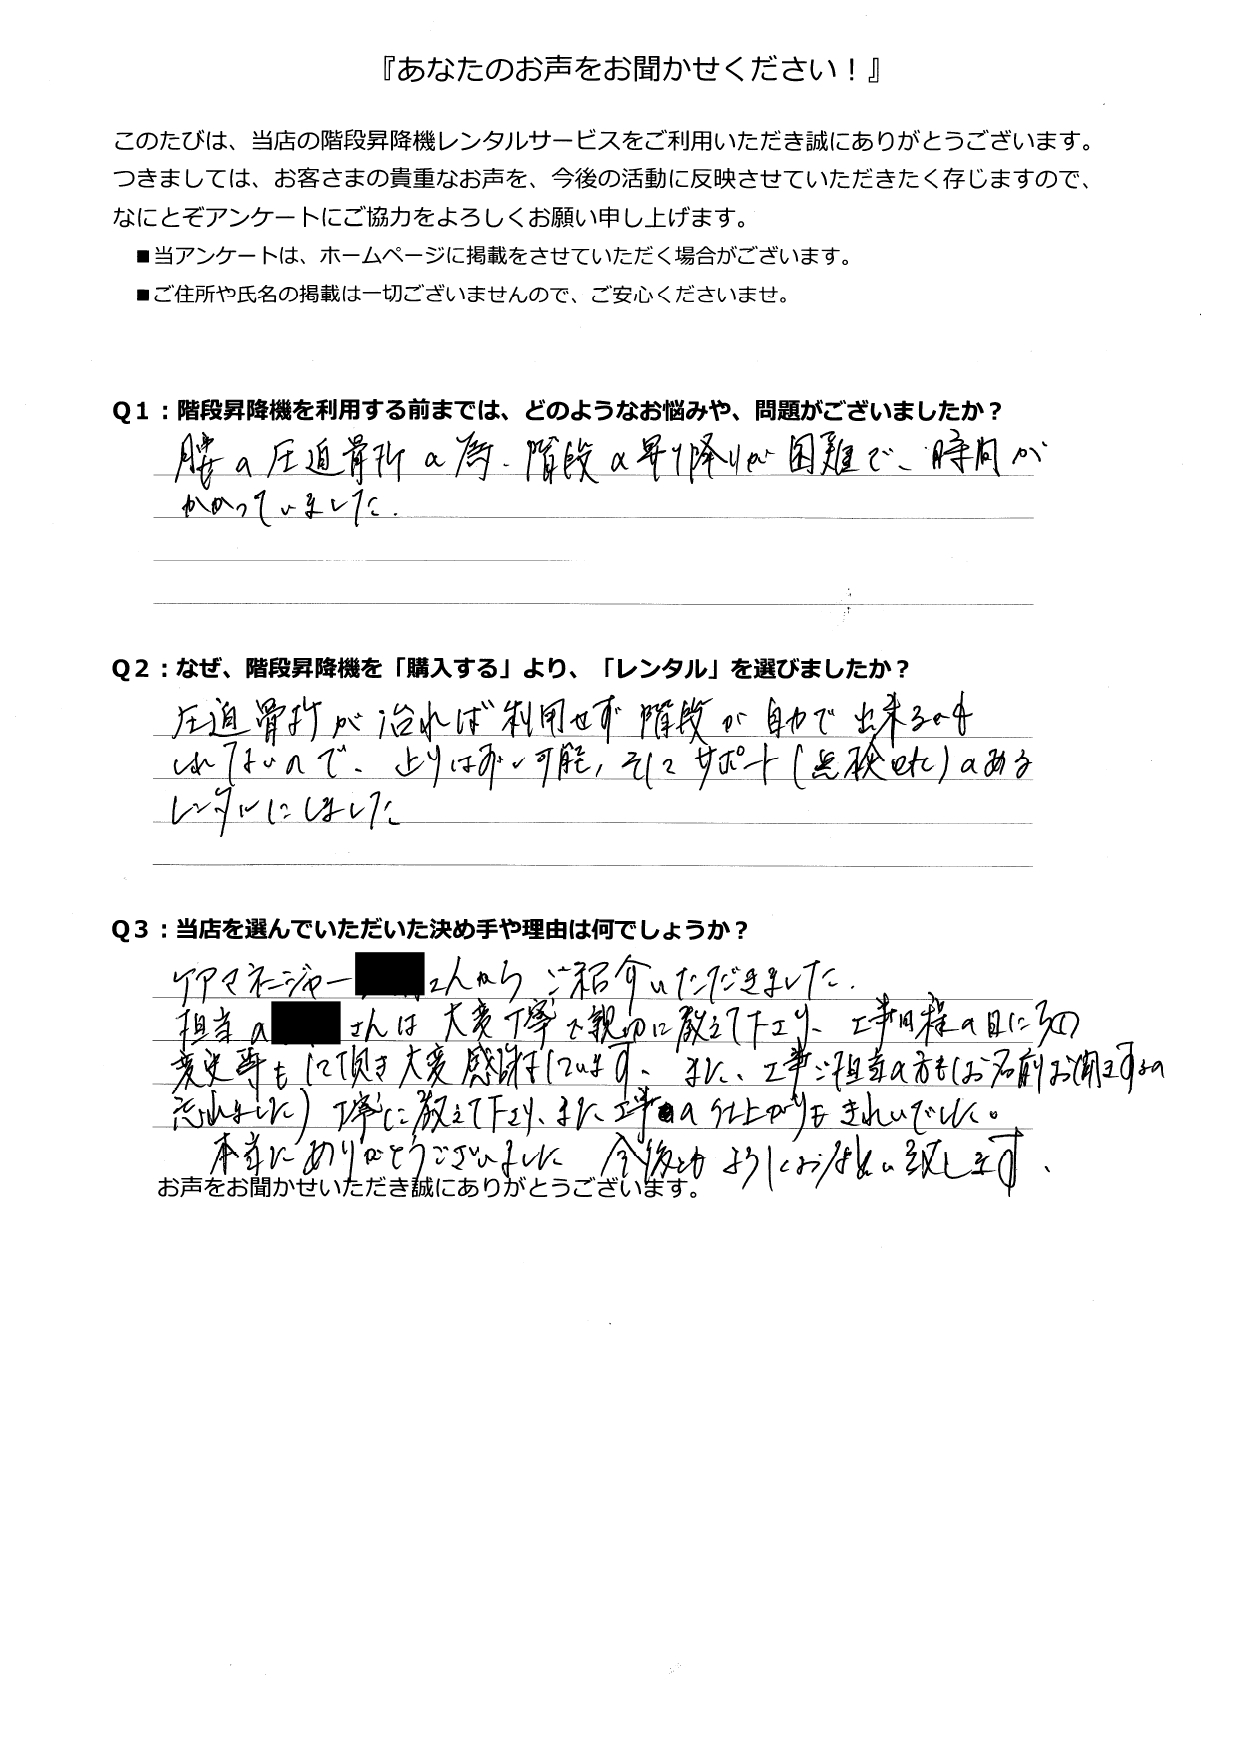 『あなたのお声をお聞かせください！』
このたびは、当店の階段昇降機レンタルサービスをご利用いただき誠にありがとうございます。
つきましては、お客さまの貴重なお声を、今後の活動に反映させていただきたく存じますので、
なにとぞアンケートにご協力をよろしくお願い申し上げます。
■当アンケートは、ホームページに掲載をさせていただく場合がございます。
■ご住所や氏名の掲載は一切ございませんので、ご安心くださいませ。
Q1：階段昇降機を利用する前までは、どのようなお悩みや、問題がございましたか？
腰の圧迫骨折の為、階段の昇り降りが困難で、時間が
かかっていました.
Q2：なぜ、階段昇降機を「購入する」より、「レンタル」を選びましたか？
圧迫骨折が治れば利用せず階段が自力で出来るかも
しれないので、 可能, そしてサポート(点検)のある
レンタルにしました
Q3：当店を選んでいただいた決め手や理由は何でしょうか？
ケアマネージャー さんからご紹介いただきました.
担当の さんは大変丁寧で親切に教えて下さり、工事日程の
変更等もして頂き大変感謝しています。また、工事ご担当の方も(お名前お聞きするの
忘れました)丁寧に教えて下さり、また工事の仕上がりもきれいでした。
本当にありがとうございました 今後ともよろしくお願い致します、
お声をお聞かせいただき誠にありがとうございます。